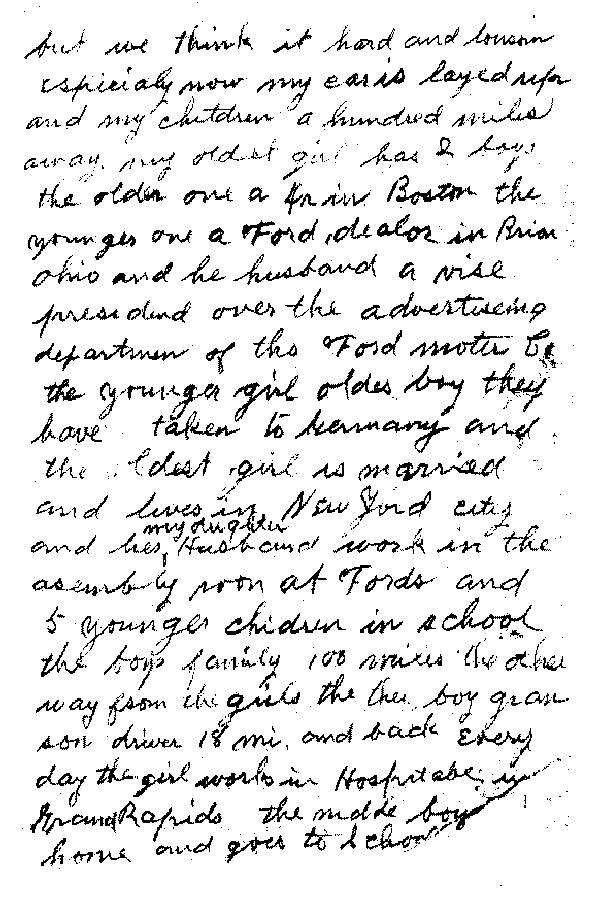 but we think it hard and lonsom
especialy now my car is layed up for
and my children a hundred miles
away. my oldest girl has 2 boys
the older one a in Boston the
younger one a Ford dealor in
ohio and he husband a vise
presidend over the advertiseing
departmen of the Ford moter Co
the younger girl oldes boy they
have taken to Germany and
the oldest girl is married
and lives in New York city
my daughter
and hes Husband work in the
asembly room at Fords and
5 younger chidren in school
the boys family 100 miles the other
way from the girls the boy gran
son driver 18 mi. and back Every
day the girl works in Hospitabe in
Grand Rapids the midde boy
home and goes to School